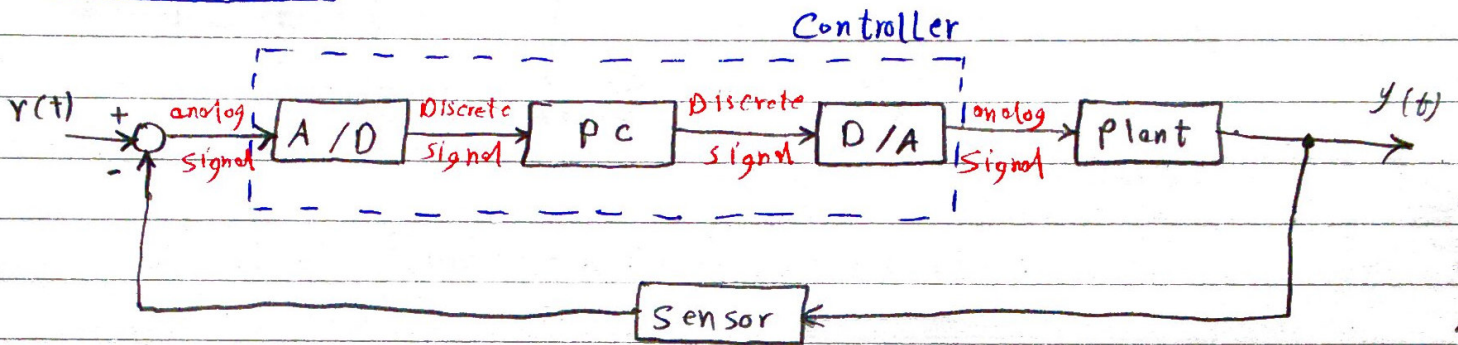 Controller
r(t) + analog signal A/D Discrete signal PC Discrete signal D/A analog signal Plant y(t)
-
Sensor